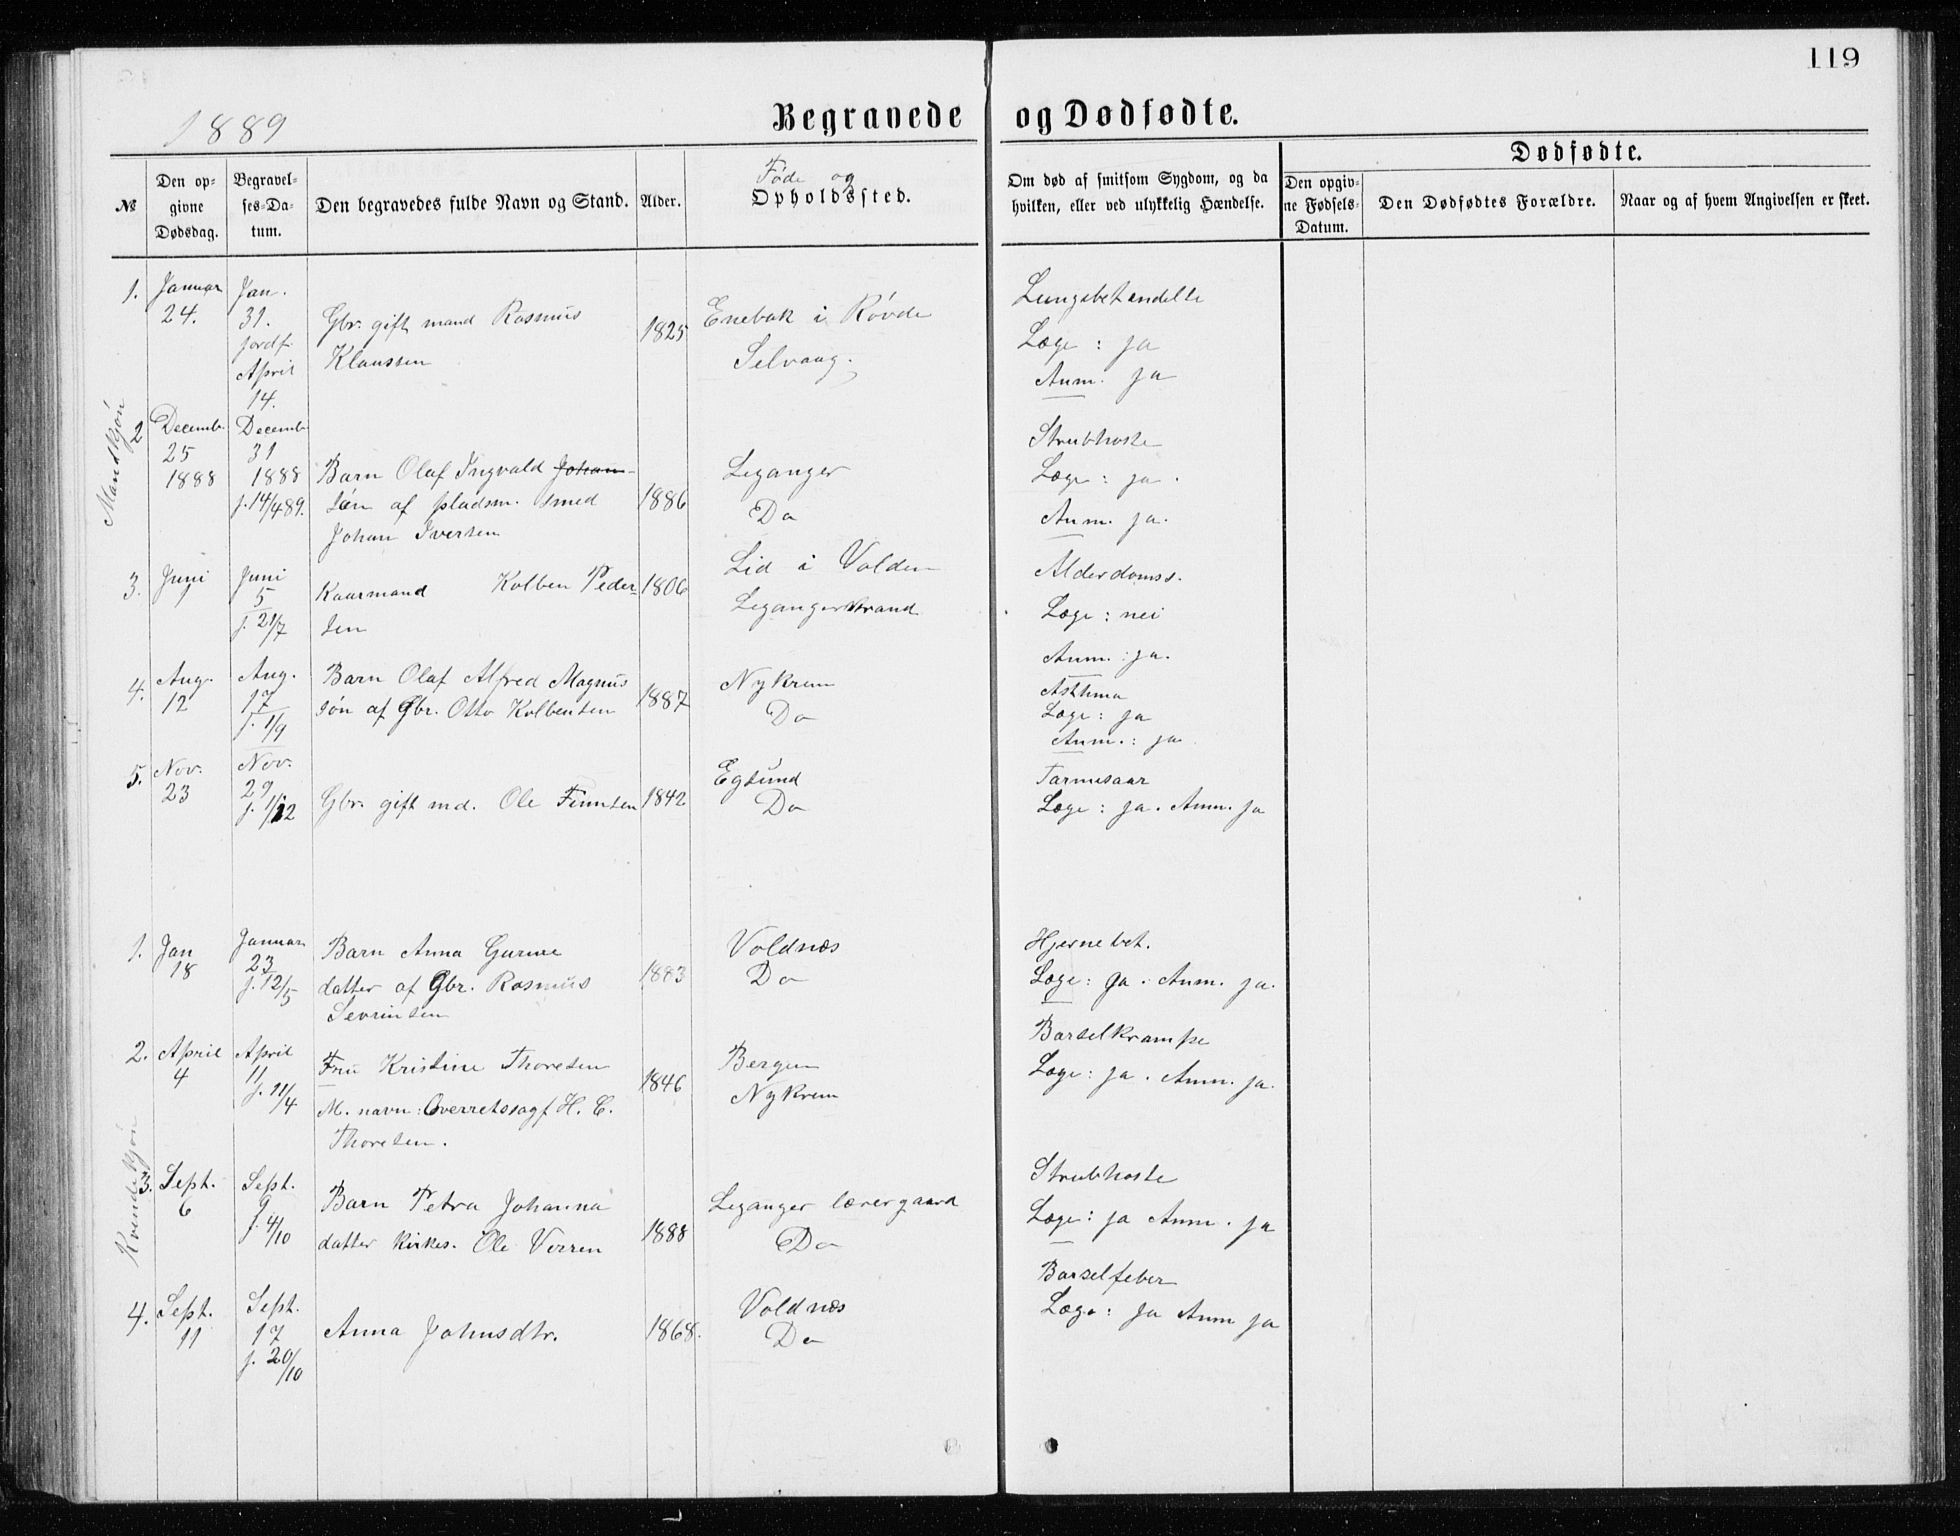 119
1889
Begravede og Dødfødte.
Dødfødte.
№
Den opgivne Dødsdag.
Begravelses-Datum.
Den begravedes fulde Navn og Stand.
Alder.
Føde og
Opholdssted.
Om død af smitsom Sygdom, og da
hvilken, eller ved ulykkelig Hændelse.
Den opgivne Fødsels-Datum.
Den Dødfødtes Forældre.
Naar og af hvem Angivelsen er skeet.
Mandkjøn
1. Januar 24.
Jan. 31. jordf. April 14.
Gbr. gift mand Rasmus
Klaussen
1825
Enebak i Røvde
Selvaag.
Lungebetændelse
Læge : ja
Anm. ja
2 Decemb. 25 1888
Decemb. 31 1888 j. 14/4 89.
Barn Olaf Ingvald Johan-
søn af pladsm. smed
Johan Iversen
1886
Leganger
Do
Strubhoste
Læge : ja .
Anm. ja.
3. Juni
Juni 5 j. 21/7
Kaarmand Kolben Peder-
sen
1806
Lid i Volden
Legangerstrand
Alderdomss.
Læge : nei
Anm. : ja.
4. Aug. 12
Aug. 17 j. 1/9
Barn Olaf Alfred Magnus
søn af Gbr. Otto Kolbensen
1887
Nykrem
Do
Asthma
Læge : ja
Anm. : ja
5. Nov. 23
Nov. 29 j. 1/12
Gbr. gift md. Ole Finnsen
1842
Egsund
Do
Tarmesaar
Læge : ja . Anm. ja
Kvindekjøn
1. Jan 18
Januar 23 j. 12/5
Barn Anna Gurine
datter af Gbr. Rasmus
Sevrinsen
1883
Voldnæs
Do
Hjernebet.
Læge : ja . Anm. ja.
2. April 4
April 11 j. 11/4
Fru Kristine Thoresen
M. navn : Overretssagf. H. C.
Thoresen.
1846
Bergen
Nykrem
Barselkrampe
Læge : ja . Anm. ja.
3. Sept. 6
Sept. 9 j. 4/10
Barn Petra Johanna
datter kirkes. Ole Verren
1888
Leganger lærergaard
Do
Strubhoste
Læge : ja Anm. ja
4. Sept. 11
Sept. 17 j. 20/10
Anna Johnsdtr.
1868.
Voldnæs
Do
Barselfeber
Læge : ja Anm ja